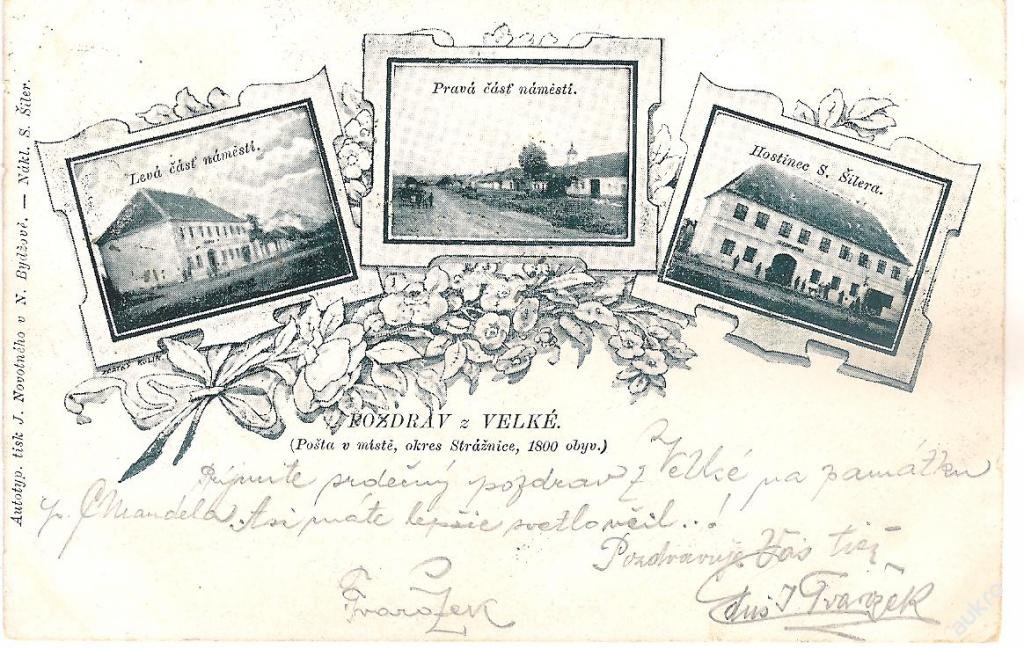 Autotyp. tisk J. Novotného v N. Bydžově. — Nákl. S. Šiler.
Levá část náměstí.
Pravá část náměstí.
Hostinec S. Šilera.
POZDRAV z VELKÉ.
(Pošta v místě, okres Strážnice, 1800 obyv.)
srdečný pozdrav z Velké na památku
p. Asi máte lepšie
Pozdravuje Vás tiež
Tvarožek
Tvarožek
aukro